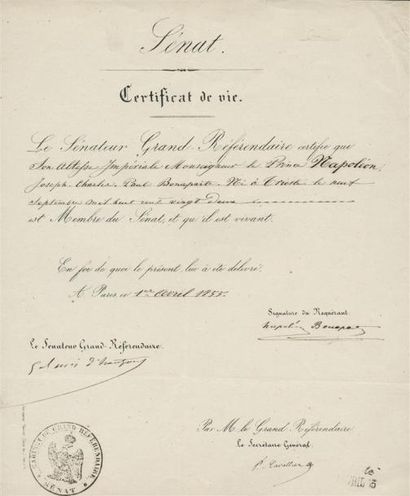 Sénat.
Certificat de vie.
Le Sénateur Grand Référendaire certifie que
Son Altesse Impériale Monseigneur le Prince Napoléon,
Joseph Charles Paul Bonaparte. Né à Trieste le neuf
septembre mil huit cent vingt deux
est Membre du Sénat, et qu'il est vivant.
En foi de quoi le présent lui a été délivré.
A Paris ce 1er Avril 1855.
Signature du Requérant.
Napoléon Bonaparte
Le Sénateur Grand-Référendaire.
Par M. le Grand Référendaire.
Le Secrétaire Général.
GRAND RÉFÉRENDAIRE.
SÉNAT